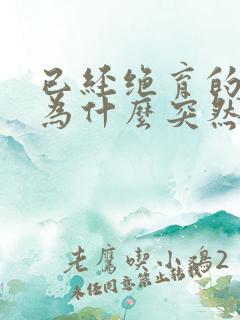 已經绝育的
為什麼突然
老鷹喫小鷄2
未经同意禁止转载